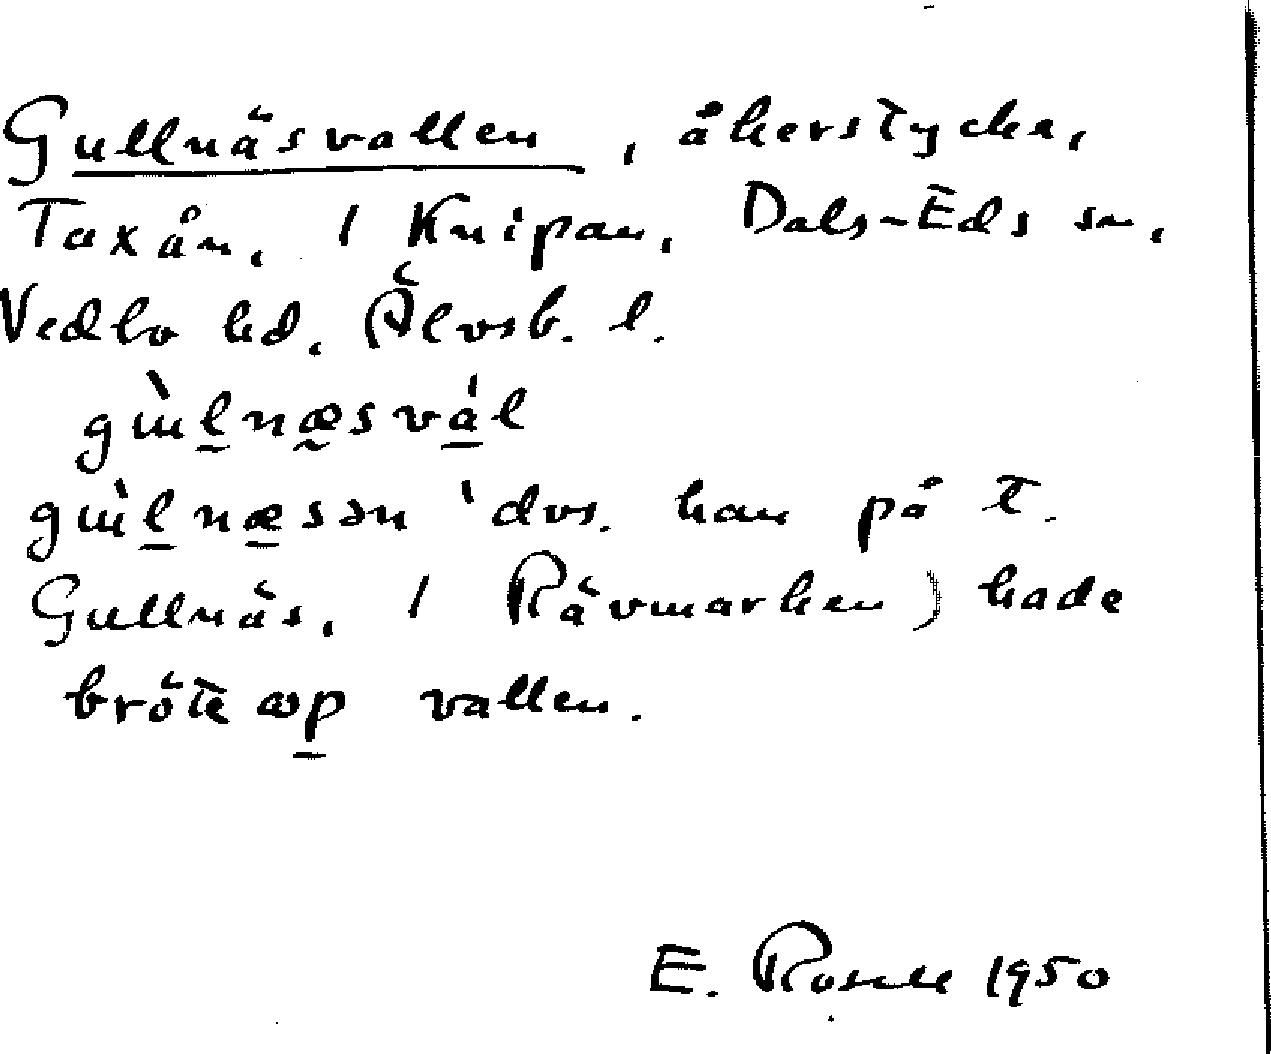 Gullnäsvallen, åkerstycke,
Taxån, 1 Knipan, Dals-Eds sn,
Vedbo hd, Älvsb. l.
gɯ̀l̠næ̰svá̠l
gɯ̀l̠næ̠sən 'dvs. han på t.
Gullnäs, 1 Rävmarken) hade
bröte ɷp̠ vallen.
E. Rosell 1950